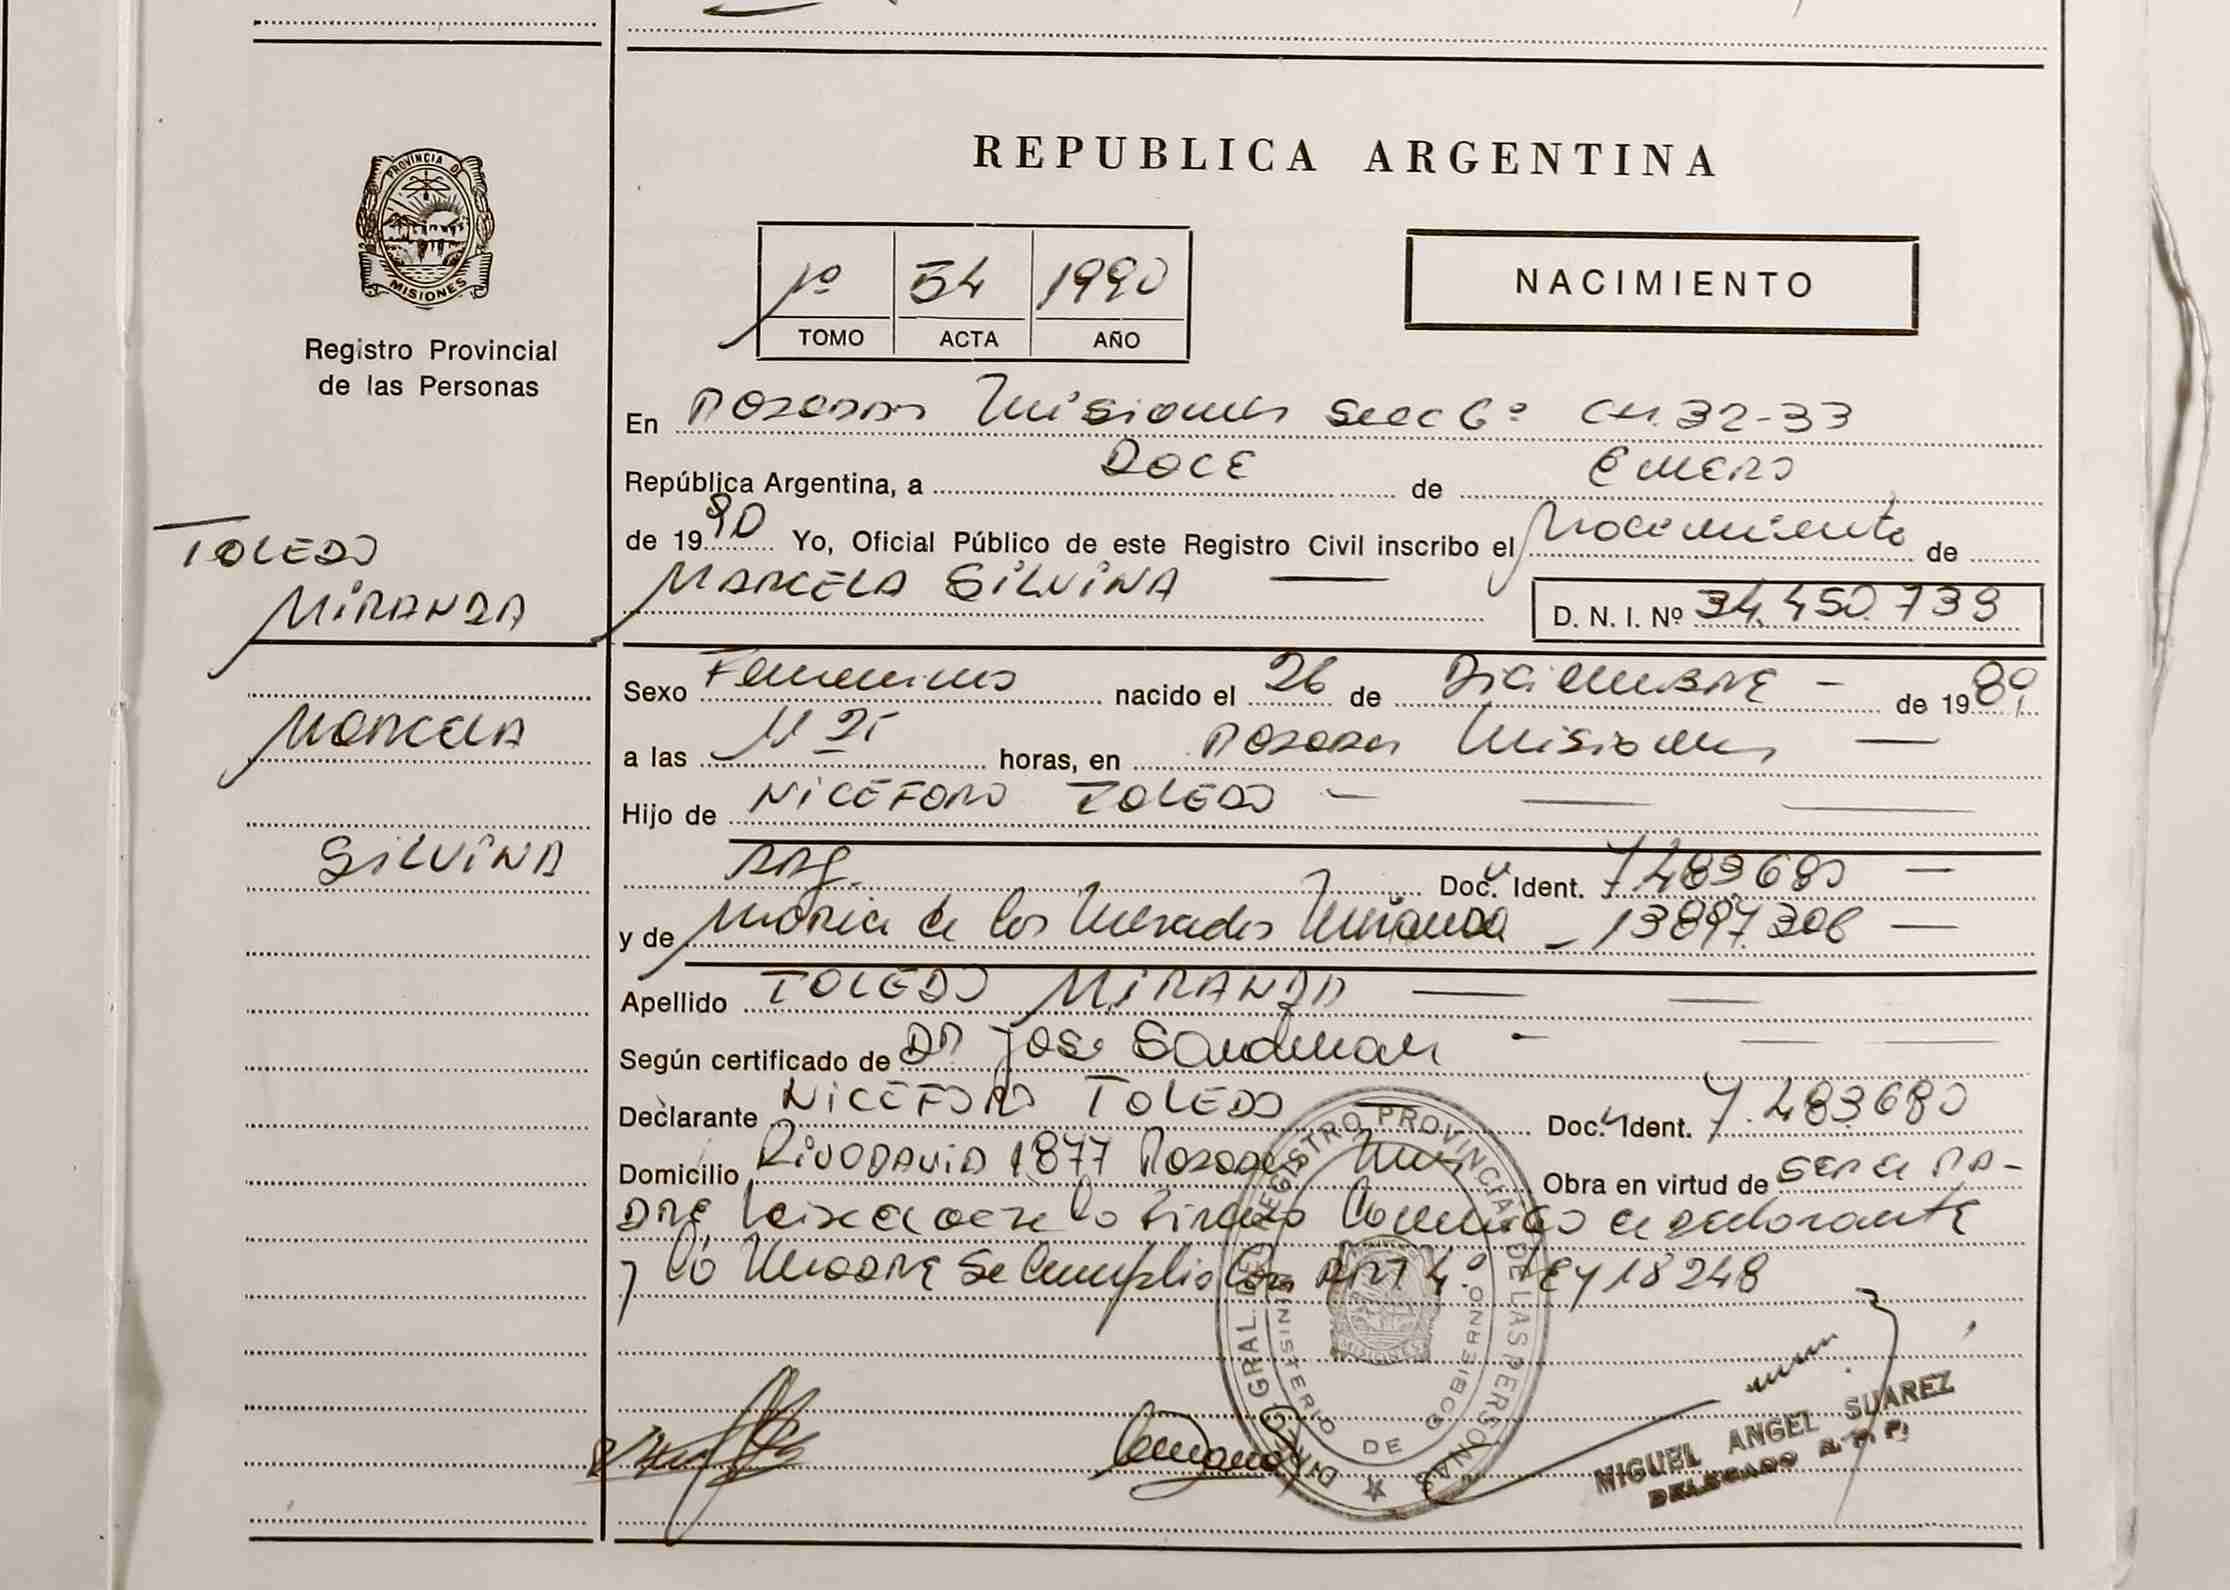 PROVINCIA DE
MISIONES
Registro Provincial
de las Personas
TOLEDO
MIRANDA
MARCELA
SILVINA
REPUBLICA ARGENTINA
1º 54 1990
TOMO ACTA AÑO
NACIMIENTO
En Posadas Misiones Secc 6º CH. 32-33
República Argentina, a DOCE de ENERO
de 1990 Yo, Oficial Público de este Registro Civil inscribo el Nacimiento de
MARCELA SILVINA
D. N. I. Nº 34.450.739
Sexo Femenino nacido el 26 de Diciembre de 1989
a las horas, en Posadas Misiones
Hijo de NICEFORO TOLEDO
ARG. Doc. Ident. 7.483.680
y de Maria de los Mercedes Miranda 13897.306
Apellido TOLEDO MIRANDA
Según certificado de DR Jose Sandman
Declarante NICEFORO TOLEDO Doc. Ident. 7.483.680
Domicilio RIVADAVIA 1877 Posadas Mnes Obra en virtud de SER el PA-
DRE Leida el acta la Firman Conmigo el declarante
y la Madre Se Cumplio Con ART 4º LEY 18248
DIREC. GRAL. DEL REGISTRO PROVINCIAL DE LAS PERSONAS
MINISTERIO DE GOBIERNO
MISIONES
MIGUEL ANGEL SUAREZ
DELEGADO R. P. P.